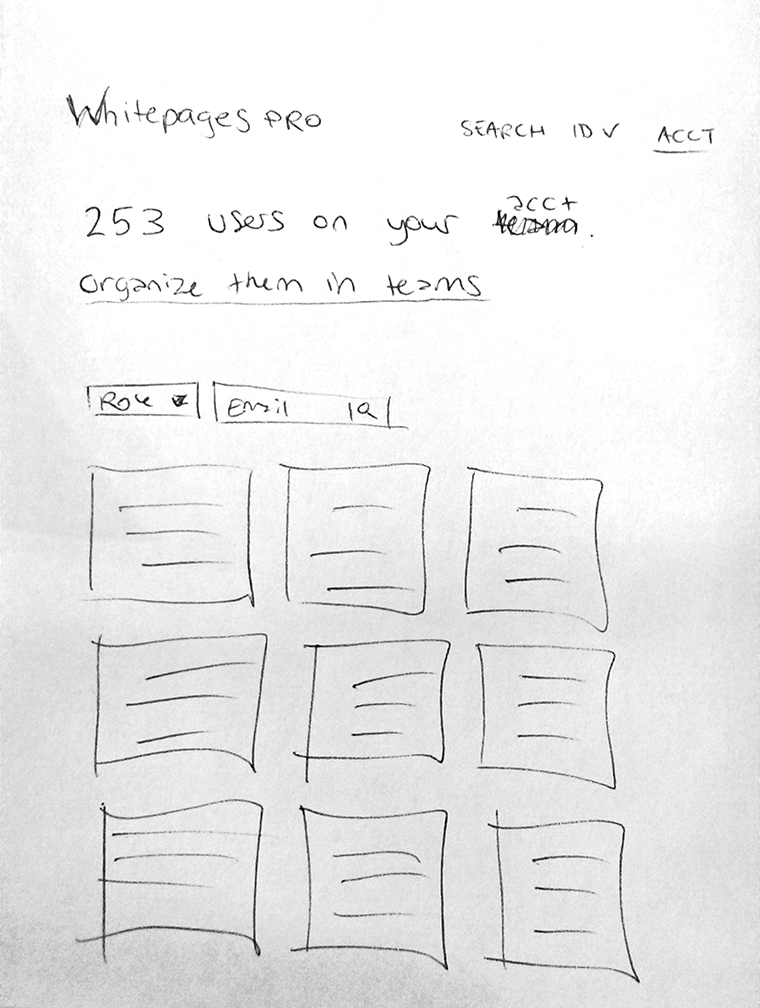 Whitepages PRO
SEARCH IDV ACCT
253 users on your acct.
organize them in teams
Role
Email